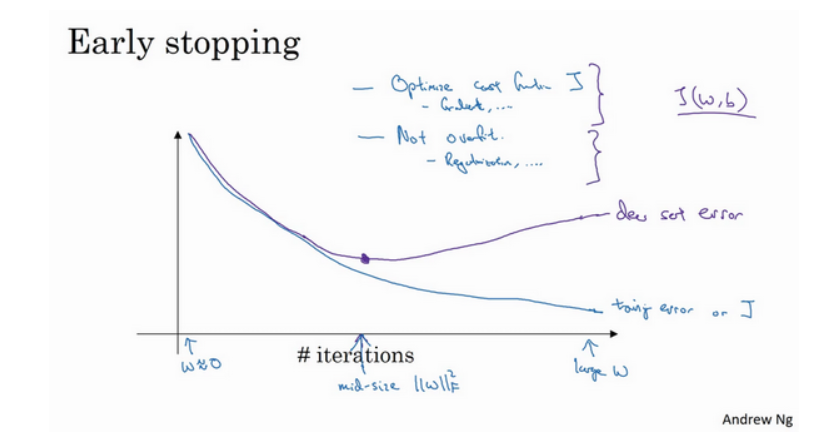 Early stopping
— Optimize cost function J
- Gradient, ....
J(w,b)
— Not overfit.
- Regularization, ....
dev set error
training error or J
w≈0
# iterations
large w
mid-size ||w||²_F
Andrew Ng